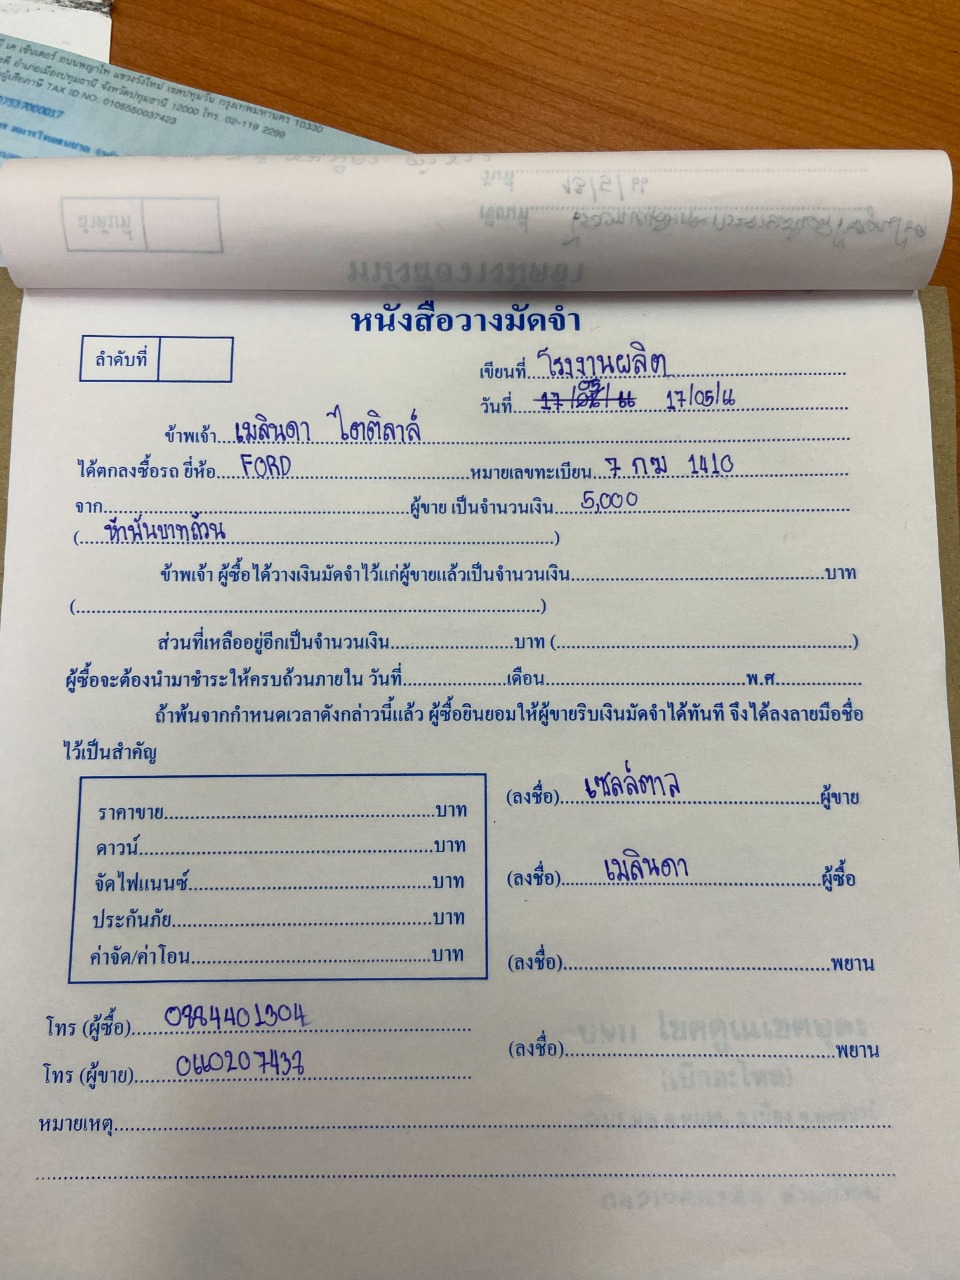 เค เซ็นเตอร์ ถนนพญาไท แขวงวังใหม่ เขตปทุมวัน กรุงเทพมหานคร 10330
อำเภอเมืองปทุมธานี จังหวัดปทุมธานี 12000 โทร. 02-119 2299
ผู้เสียภาษี TAX ID NO. 0105550037423
หนังสือวางมัดจำ
ลำดับที่
เขียนที่ โรงงานผลิต
วันที่ 17/05/
ข้าพเจ้า เมลินดา ไตติลาล์
ได้ตกลงซื้อรถ ยี่ห้อ FORD หมายเลขทะเบียน 7 กฆ 1410
จาก ผู้ขาย เป็นจำนวนเงิน 5,000
(ห้าพันบาทถ้วน)
ข้าพเจ้า ผู้ซื้อได้วางเงินมัดจำไว้แก่ผู้ขายแล้วเป็นจำนวนเงิน บาท
( )
ส่วนที่เหลืออยู่อีกเป็นจำนวนเงิน บาท ( )
ผู้ซื้อจะต้องนำมาชำระให้ครบถ้วนภายใน วันที่ เดือน พ.ศ.
ถ้าพ้นจากกำหนดเวลาดังกล่าวนี้แล้ว ผู้ซื้อยินยอมให้ผู้ขายริบเงินมัดจำได้ทันที จึงได้ลงลายมือชื่อ
ไว้เป็นสำคัญ
ราคาขาย บาท
ดาวน์ บาท
จัดไฟแนนซ์ บาท
ประกันภัย บาท
ค่าจัด/ค่าโอน บาท
(ลงชื่อ) เซลล์ตาล ผู้ขาย
(ลงชื่อ) เมลินดา ผู้ซื้อ
(ลงชื่อ) พยาน
(ลงชื่อ) พยาน
โทร (ผู้ซื้อ) 0884401304
โทร (ผู้ขาย)
หมายเหตุ